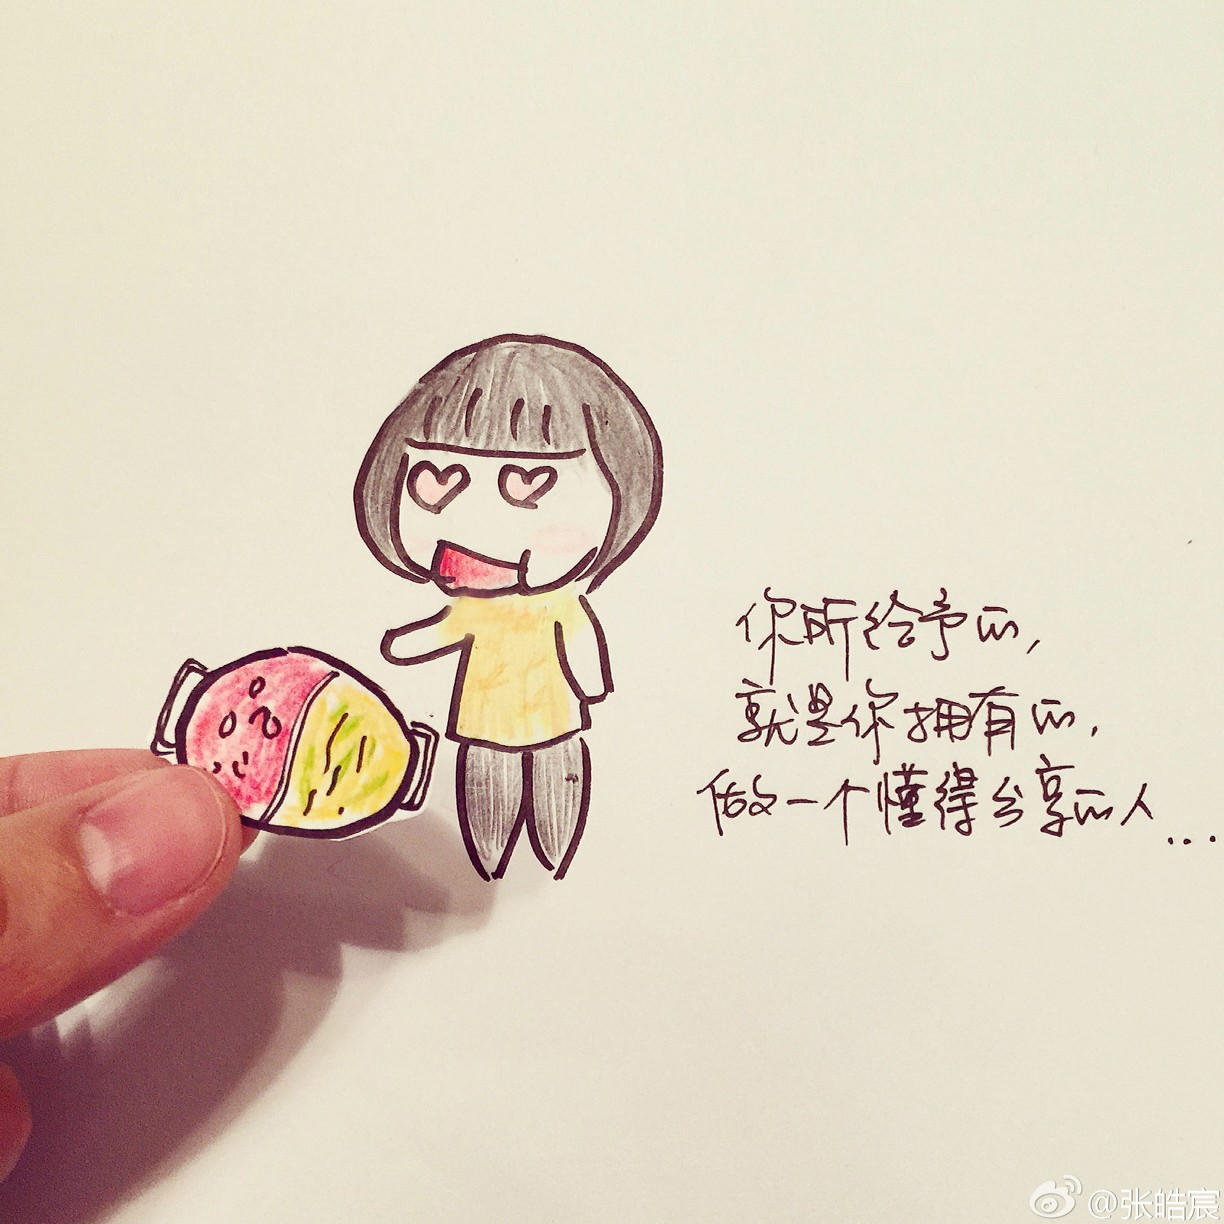 你所给予的,
就是你拥有的,
做一个懂得分享的人...
@张皓宸